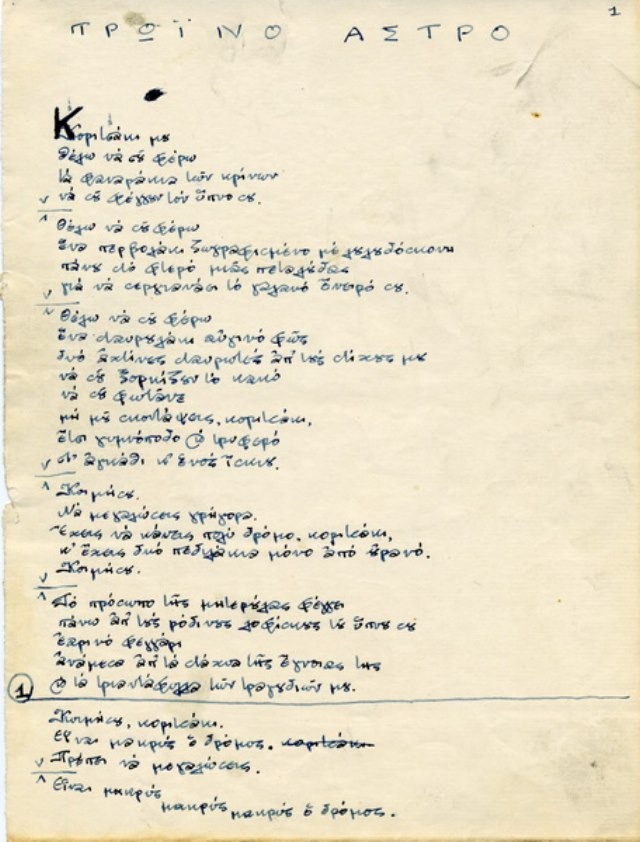 1
ΠΡΩΪΝΟ ΑΣΤΡΟ
Κοριτσάκι μου
θέλω νὰ σοῦ φέρω
τὰ φαναράκια τῶν κρίνων
νὰ σοῦ φέγγουν τὸν ὕπνο σου.
Θέλω νὰ σοῦ φέρω
ἕνα περβολάκι ζωγραφισμένο μὲ λουλουδόσκονη
πάνου στὸ φτερὸ μιᾶς πεταλούδας
γιὰ νὰ σεργιανάει τὸ γαλανὸ ὄνειρό σου.
Θέλω νὰ σοῦ φέρω
ἕνα σταυρουλάκι αὐγινὸ φῶς
δυὸ ἀχτίνες σταυρωτὲς ἀπ' τοὺς στίχους μου
νὰ σοῦ ξορκίζουν τὸ κακὸ
νὰ σοῦ φωτᾶνε
μὴ μοῦ σκοντάψεις, κοριτσάκι,
ἔτσι γυμνόποδο καὶ τρυφερὸ
στ' ἀγκάθι κ' ἑνὸς ἴσκιου.
Κοιμήσου.
Νὰ μεγαλώσεις γρήγορα.
Ἔχεις νὰ κάνεις πολὺ δρόμο, κοριτσάκι,
κ' ἔχεις δυὸ πεδιλάκια μόνο ἀπὸ οὐρανό.
Κοιμήσου.
Τὸ πρόσωπο τῆς μητερούλας φέγγει
πάνω ἀπ' τοὺς ρόδινους λοφίσκους τοῦ ὕπνου σου
ἐαρινὸ φεγγάρι
ἀνάμεσα ἀπ' τὰ στάχυα τῆς ἔγνοιας της
καὶ τὰ τριαντάφυλλα τῶν τραγουδιῶν μου.
1
Κοιμήσου, κοριτσάκι.
Εἶναι μακρὺς ὁ δρόμος. κοριτσάκι
Πρέπει νὰ μεγαλώσεις.
Εἶναι μακρὺς
μακρὺς
μακρὺς ὁ δρόμος.